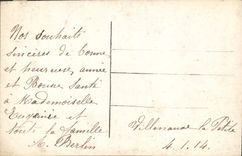 Nos souhaits
sincères de bonne
et heureuse année
et Bonne Santé
à Mademoiselle
Eugénie et
toute la famille
A. Bertin
Villenauxe la Petite
4.1.14.